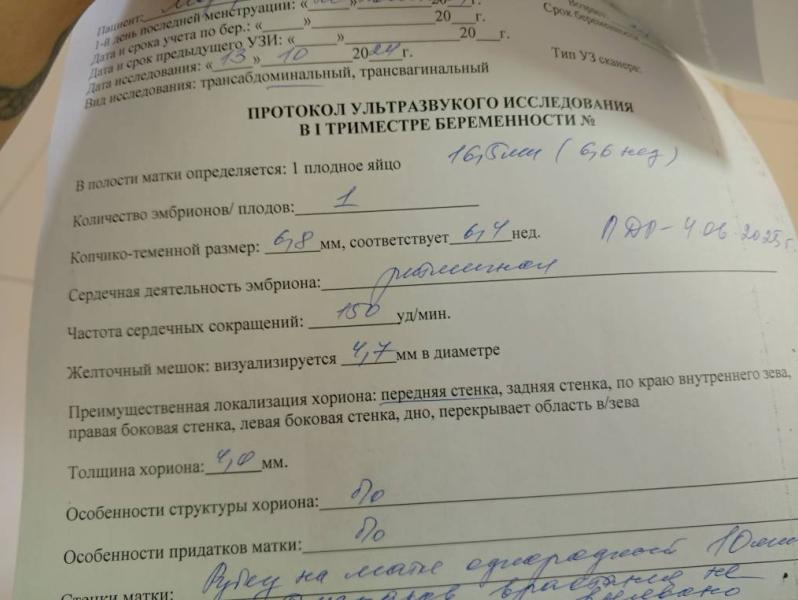 Пациент:
1-й день последней менструации: « » 20 г.
Дата и срока учета по бер.: « » 20 г.
Срок беременности
Дата и срок предыдущего УЗИ: « » 20 г.
Дата исследования: « 13 » 10 2024 г.
Тип УЗ сканера:
Вид исследования: трансабдоминальный, трансвагинальный
ПРОТОКОЛ УЛЬТРАЗВУКОГО ИССЛЕДОВАНИЯ
В I ТРИМЕСТРЕ БЕРЕМЕННОСТИ №
В полости матки определяется: 1 плодное яйцо 16,5мм (6,6 нед)
Количество эмбрионов/ плодов: 1
Копчико-теменной размер: 6,8 мм, соответствует 6,4 нед. ПДР-4 06.2025г.
Сердечная деятельность эмбриона: ритмичная
Частота сердечных сокращений: 150 уд/мин.
Желточный мешок: визуализируется 4,7 мм в диаметре
Преимущественная локализация хориона: передняя стенка, задняя стенка, по краю внутреннего зева,
правая боковая стенка, левая боковая стенка, дно, перекрывает область в/зева
Толщина хориона: 4,0 мм.
Особенности структуры хориона: б/о
Особенности придатков матки: б/о
Стенки матки: Рубец на матке однородный 10мм
врастания не